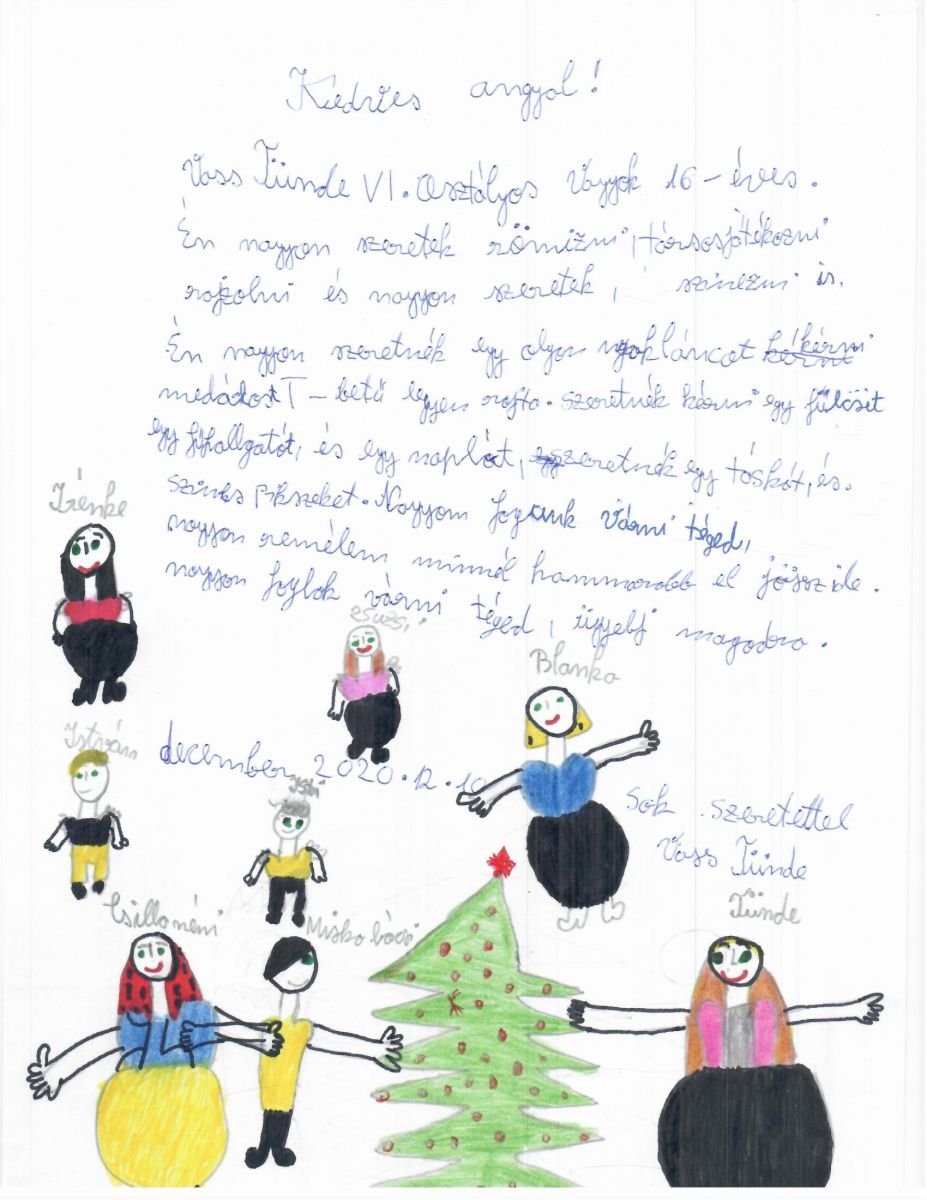 Kedves angyal!
Vass Tünde VI. osztályos vagyok 16-éves.
Én nagyon szeretek römizni, társosjátékozni
rajzolni és nagyon szeretek, színezni is.
Én nagyon szeretnék egy olyan nyakláncat kérni
medádost T-betű legyen rajta. szeretnék kérni egy fülcsit
egy fühallgatót, és egy naplót, szeretnék egy táskát, és.
szines filkszeket. Nagyom fogunk várni téged,
nagyon remélem minnél hammarabb el jössz ide.
nagyon foglok várni téged, ügyelj magadra.
Irénke
Zsuzsi
Blanka
István
december 2020.12.10
Isti
Sok szeretettel
Vass Tünde
Tünde
Csilla néni
Miska bácsi